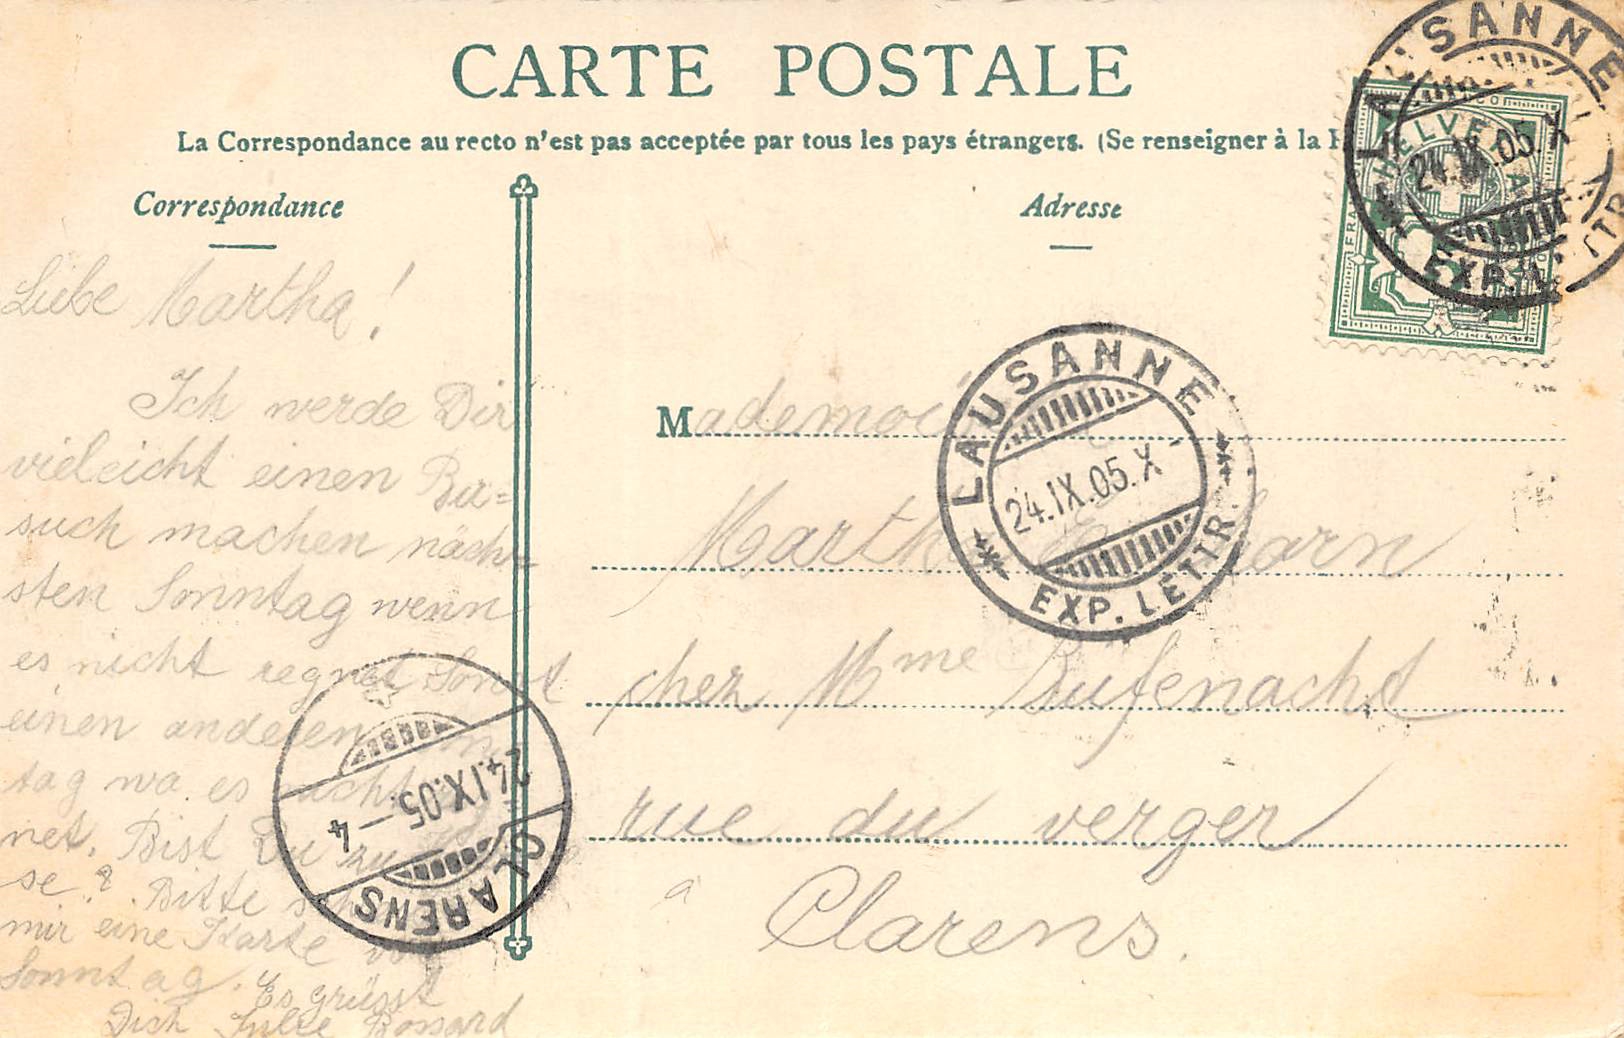 CARTE POSTALE
La Correspondance au recto n'est pas acceptée par tous les pays étrangers. (Se renseigner à la
Correspondance
Adresse
Liebe Martha!
Ich werde Dir
vieleicht einen Be=
such machen näch=
sten Sonntag wenn
es nicht regnet Sonst
einen anderen
tag wo es nicht
net. Bist Du zu
se? Bitte
mir eine Karte vor
Sonntag. Es grüsst
Dich Julie Bossard
Mademoi
Martha horn
chez Mme Rufenacht
rue du verger
à Clarens.
HELVETIA
FRANCO
LAUSANNE
24.IX.05.X
EXP. LETTR.
LAUSANNE
24.IX.05.X–
EXP. LETTR.
24.IX.05.–4
CLARENS